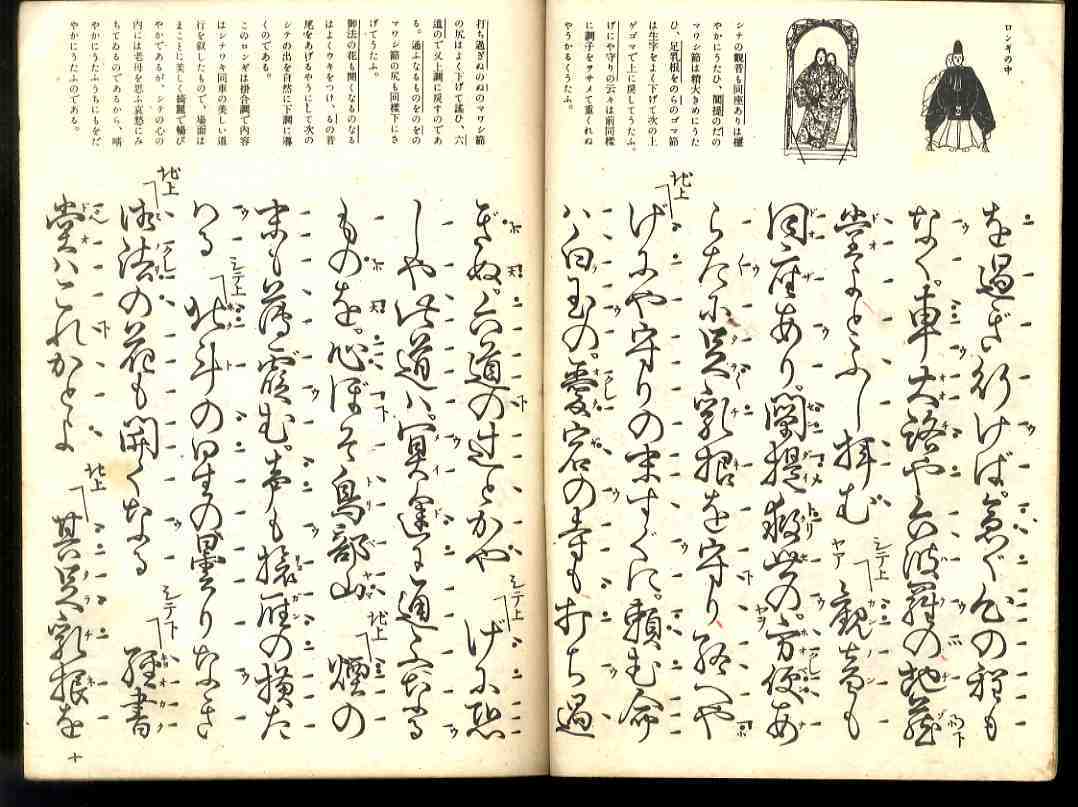 ロンギの中
シテの観音も同座ありは優
やかにうたひ、闡提のだの
マワシ節は稍大きめにうた
ひ、足乳根をのらのゴマ節
は生字をよく下げて次の上
ゲゴマで上に戻してうたふ。
げにや守りの云々は前同様
に調子をヲサメて重くれぬ
やうかるくうたふ。
を過ぎ行けば。急ぐ心の程も
なく。車大路や六波羅の地蔵
堂よとふし拝む シテ上 観音も
同座あり。闡提救世の。方便あ
らたに足乳根を守り給へや
地上 げにや守りの末すぐに。頼む命
ハ白玉の。愛宕の寺も打ち過
打ち過ぎぬのぬのマワシ節
の尻はよく下げて謡ひ、六
道ので又上調に戻すのであ
る。通ふなるものをのをの
マワシ節の尻も同様下にさ
げてうたふ。
御法の花も開くなるのなる
はよくウキをつけ、るの音
尾をあげるやうにして次の
シテの出を自然に下調に導
くのである。
このロンギは掛合調で内容
はシテワキ同車の美しい道
行を叙したもので、場面は
まことに美しく綺麗で暢び
やかであるが、シテの心の
内には老母を思ふ哀愁にみ
ちてゐるのであるから、晴
やかにうたふうちにもをだ
やかにうたふのである。
ぎぬ。六道の辻とかや シテ上 げに恐
しや此道ハ。冥途に通ふなる
ものを。心ぼそ鳥部山 地上 煙の
末も薄霞む。声も旅雁の横た
はる シテ上 北斗の星の曇りなき
地上 御法の花も開くなる シテ下 経書
堂ハこれかとよ 地上 其足乳根を
十